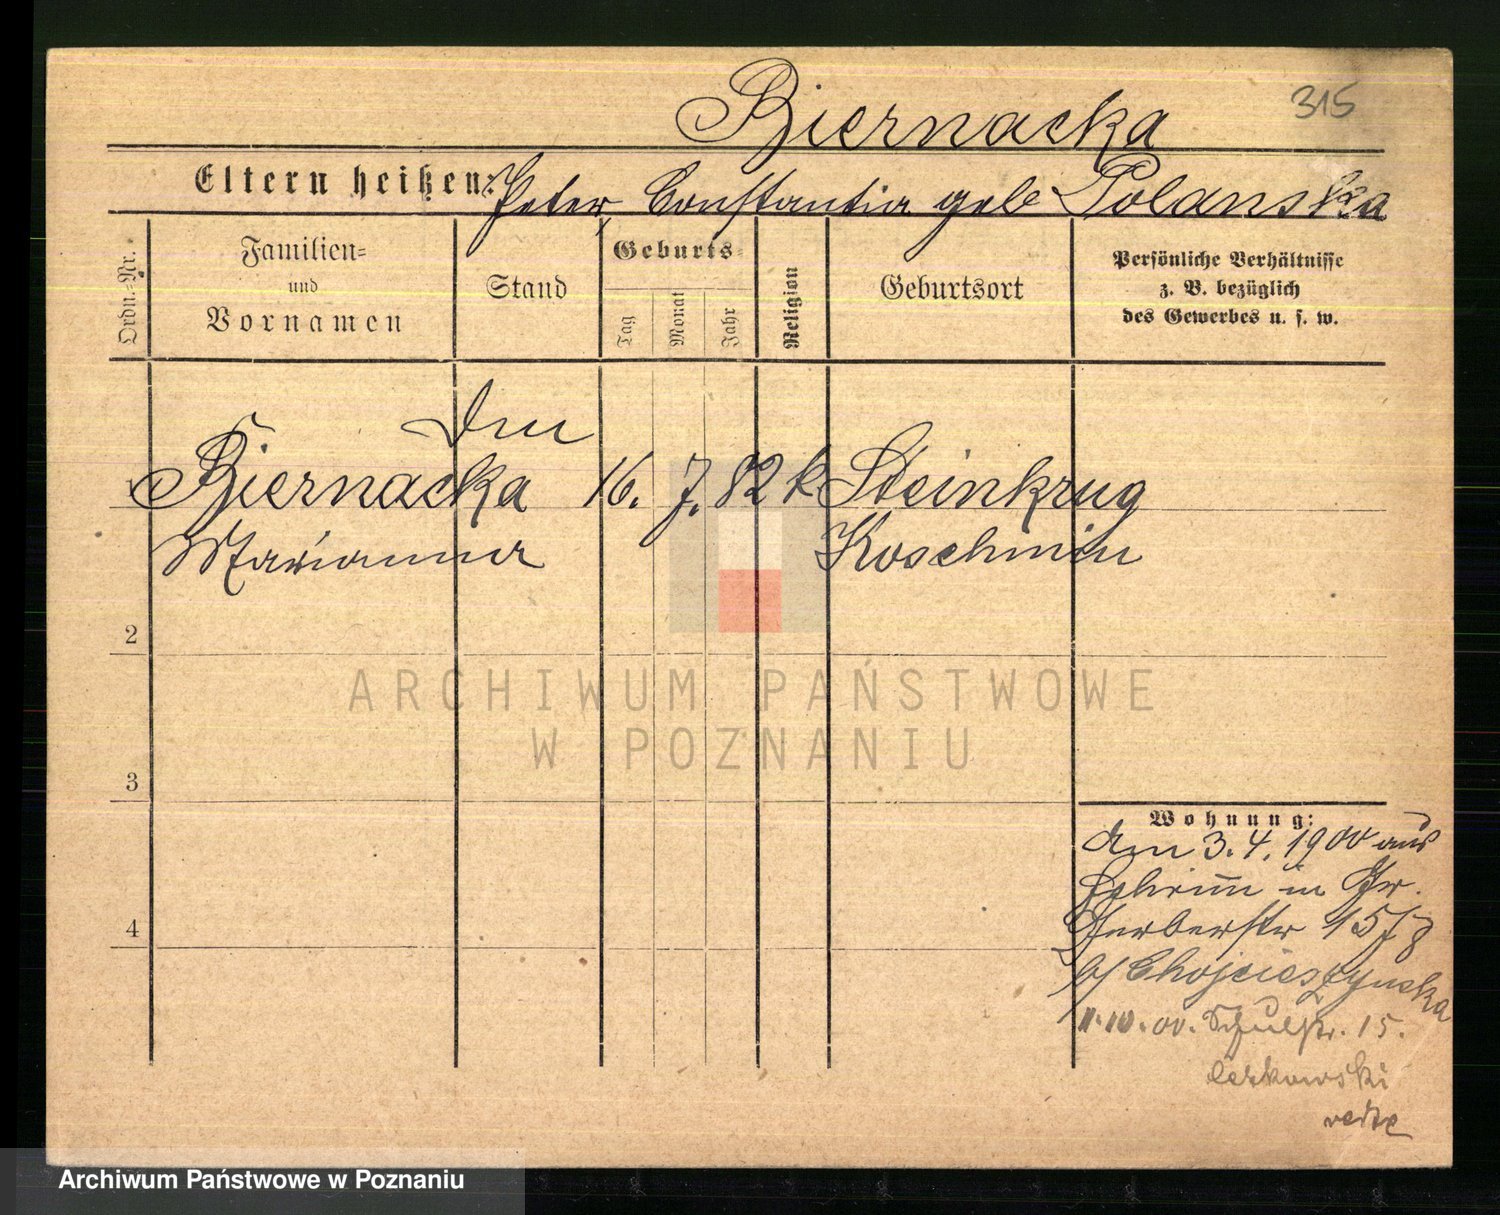 315
Biernacka
Eltern heißen: Peter, Constantia geb Polanska
Ordn.-Nr.
Familien-
und
Vornamen
Stand
Geburts-
Tag
Monat
Jahr
Religion
Geburtsort
Persönliche Verhältnisse
z. B. bezüglich
des Gewerbes u. s. w.
1 Biernacka 16. 7. 82 k Steinkrug
Marianna Koschmin
2
3
4
Wohnung:
den 3. 4. 1900 aus
in Gr.
Gerberstr 15/8
b/ Chojcieszynska
11.10.00. Schulstr. 15.
Cerkowski
ARCHIWUM PAŃSTWOWE
W POZNANIU
Archiwum Państwowe w Poznaniu